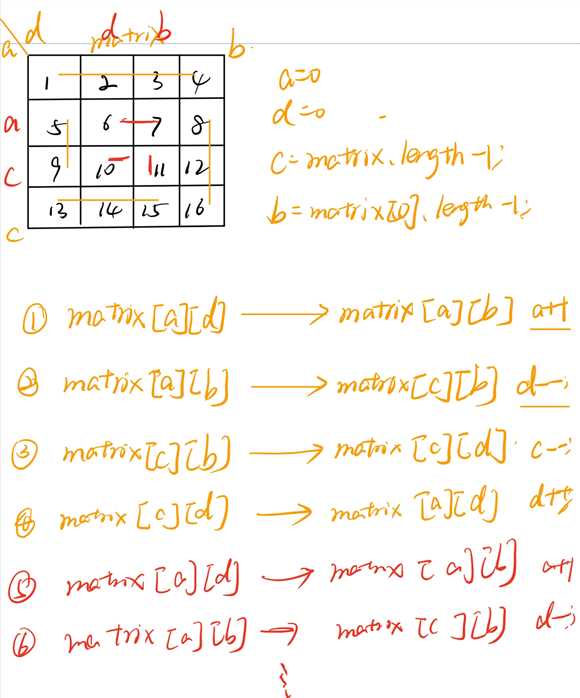 d d b
a matrix b
1 2 3 4
a 5 6 7 8
c 9 10 11 12
13 14 15 16
c
a=0
d=0
c=matrix.length-1;
b=matrix[0].length-1;
① matrix[a][d] → matrix[a][b] a++
② matrix[a][b] → matrix[c][b] d--;
③ matrix[c][b] → matrix[c][d] c--;
④ matrix[c][d] → matrix[a][d] d++;
⑤ matrix[a][d] → matrix[a][b] a++
⑥ matrix[a][b] → matrix[c][b] d--;